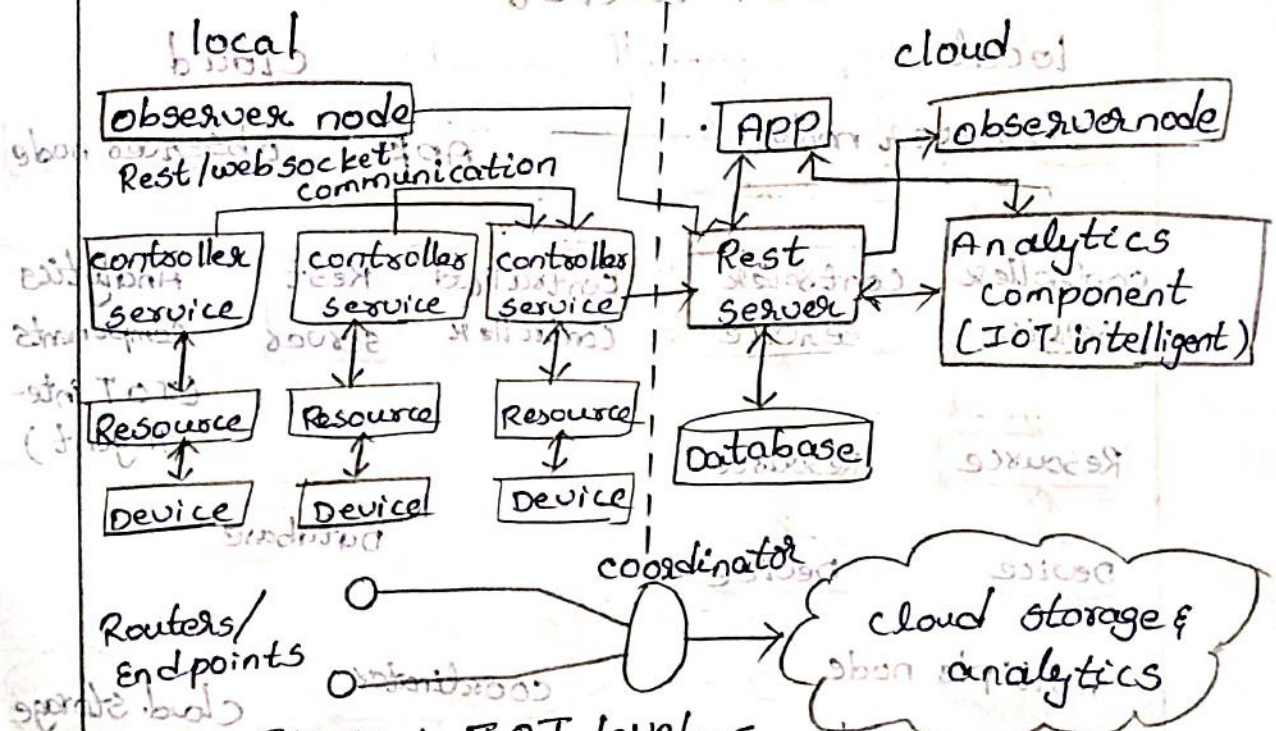 local
cloud
observer node
APP
observernode
Rest/websocket
communication
controller
service
controller
service
controller
service
Rest
server
Analytics
component
(IOT intelligent)
Resource
Resource
Resource
Database
Device
Device
Device
coordinator
Routers/
Endpoints
cloud storage &
analytics
IOT level